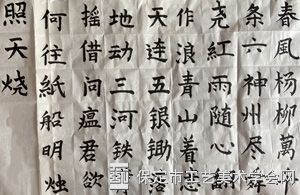 春風杨柳萬
条六神州尽
尧紅雨随心
作浪青山着
天连五银锄
地动三河铁
摇借问瘟君欲
何往紙船明烛
照天烧
保定市工艺美术学会网